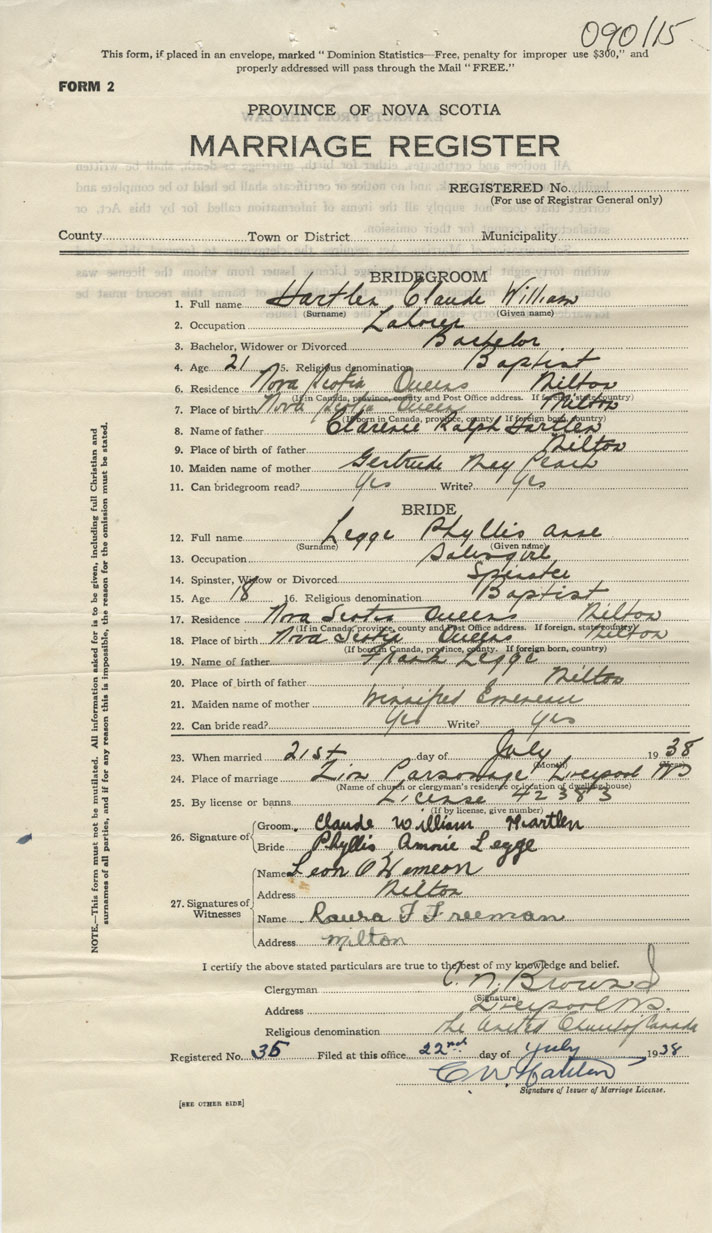 090115
This form, if placed in an envelope, marked "Dominion Statistics—Free, penalty for improper use $300," and
properly addressed will pass through the Mail "FREE."
FORM 2
PROVINCE OF NOVA SCOTIA
MARRIAGE REGISTER
REGISTERED No.
(For use of Registrar General only)
County Town or District Municipality
BRIDEGROOM
1. Full name Hartlen Claude William
(Surname) (Given name)
2. Occupation Laborer
3. Bachelor, Widower or Divorced Bachelor
4. Age 21 5. Religious denomination Baptist
6. Residence Nova Scotia Queens Milton
(If in Canada, province, county and Post Office address. If foreign, state country)
7. Place of birth Nova Scotia Queens Milton
(If born in Canada, province, county. If foreign born, country)
8. Name of father Clarence Ralph Hartlen
9. Place of birth of father Milton
10. Maiden name of mother Gertrude May
11. Can bridegroom read? Yes Write? Yes
BRIDE
12. Full name Legge Phyllis Anne
(Surname) (Given name)
13. Occupation Salesgirl
14. Spinster, Widow or Divorced Spinster
15. Age 18 16. Religious denomination Baptist
17. Residence Nova Scotia Queens Milton
(If in Canada, province, county and Post Office address. If foreign, state country)
18. Place of birth Nova Scotia Queens Milton
(If born in Canada, province, county. If foreign born, country)
19. Name of father Frank Legge
20. Place of birth of father Milton
21. Maiden name of mother Winnifred
22. Can bride read? Yes Write? Yes
23. When married 21st day of July 1938
(Month) (Year)
24. Place of marriage Zion Parsonage Liverpool NS
(Name of church or clergyman's residence or location of dwelling house)
25. By license or banns License 42383
(If by license, give number)
26. Signature of Groom Claude William Hartlen
Bride Phyllis Annie Legge
27. Signatures of Witnesses
Name Leon
Address Milton
Name Laura F Freeman
Address Milton
I certify the above stated particulars are true to the best of my knowledge and belief.
Clergyman C. N. Brown
(Signature)
Address Liverpool N.S.
Religious denomination The United Church of Canada
Registered No. 35 Filed at this office 22nd day of July 1938
C W Hartlen
Signature of Issuer of Marriage License.
[SEE OTHER SIDE]
NOTE.—This form must not be mutilated. All information asked for is to be given, including full Christian and
surnames of all parties, and if for any reason this is impossible, the reason for the omission must be stated.